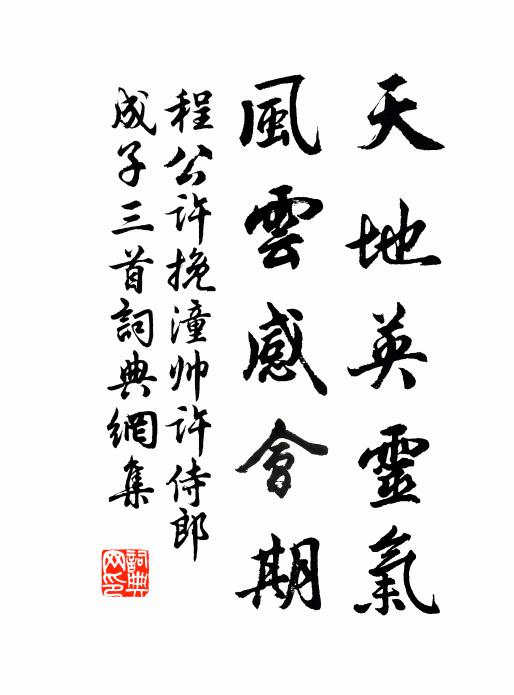 天地英靈氣
風雲感會期
程公許挽潼帅許侍郎
成子三首詞典網集
詞典网印